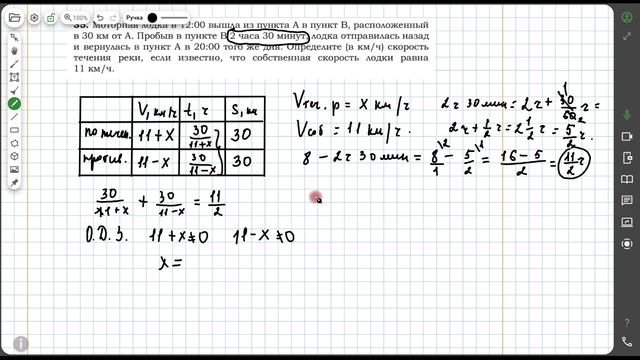 Ручка
35. Моторная лодка в 12:00 вышла из пункта А в пункт В, расположенный
в 30 км от А. Пробыв в пункте В 2 часа 30 минут, лодка отправилась назад
и вернулась в пункт А в 20:00 того же дня. Определите (в км/ч) скорость
течения реки, если известно, что собственная скорость лодки равна
11 км/ч.
V, км/ч t, ч S, км
по теч. 11+x 30/11+x 30
против. 11-x 30/11-x 30
30/11+x + 30/11-x = 11/2
О.Д.З. 11+x≠0 11-x≠0
x=
Vтеч. р = x км/ч
Vсоб = 11 км/ч.
2ч 30 мин = 2ч + 30/60 ч =
2ч + 1/2 ч = 2 1/2 ч = 5/2 ч.
8 - 2ч 30 мин = 8/1 - 5/2 = 16-5/2 = 11/2 ч